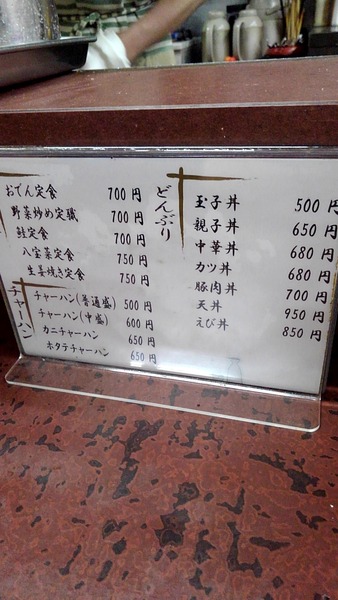 おでん定食 700円
野菜炒め定職 700円
鮭定食 700円
八宝菜定食 750円
生姜焼き定食 750円
チャーハン
チャーハン(普通盛) 500円
チャーハン(中盛) 600円
カニチャーハン 650円
ホタテチャーハン 650円
どんぶり
玉子丼 500円
親子丼 650円
中華丼 680円
カツ丼 680円
豚肉丼 700円
天丼 950円
えび丼 850円